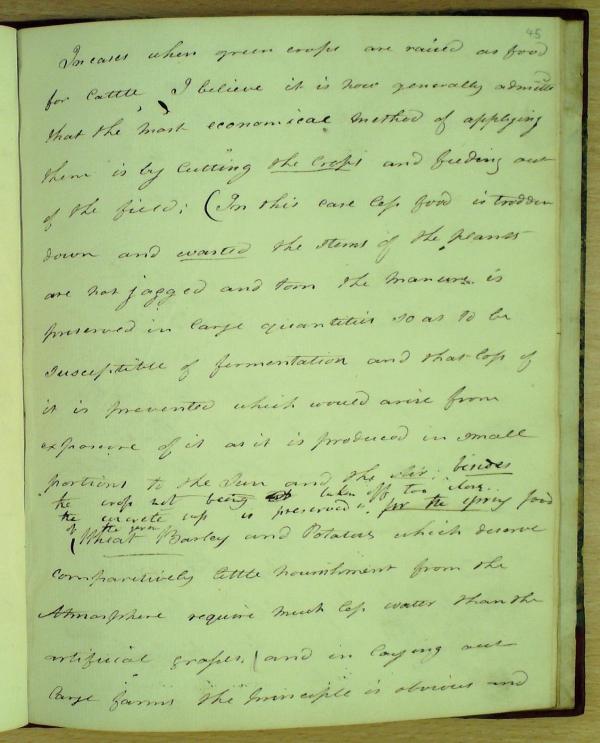 45
In cases when green crops are raised as food
for Cattle, I believe it is now generally admitted
that the most economical method of applying
them is by Cutting the Crops and feeding out
of the field; (In this case less food is trodden
down and wasted the stems of the plants
are not jagged and torn the manure is
preserved in large quantities so as to be
susceptible of fermentation and that loss of
it is prevented which would arise from
exposure of it as it is produced in small
portions to the Sun and the Air: besides
the crops not being taken off too close
the concrete sap is preserved for the spring food
of the
(Wheat Barley and Potatoes which deserve
comparitively little nourishment from the
Atmosphere require much less water than the
artificial grasses. (and in laying out
large farms the principle is obvious and